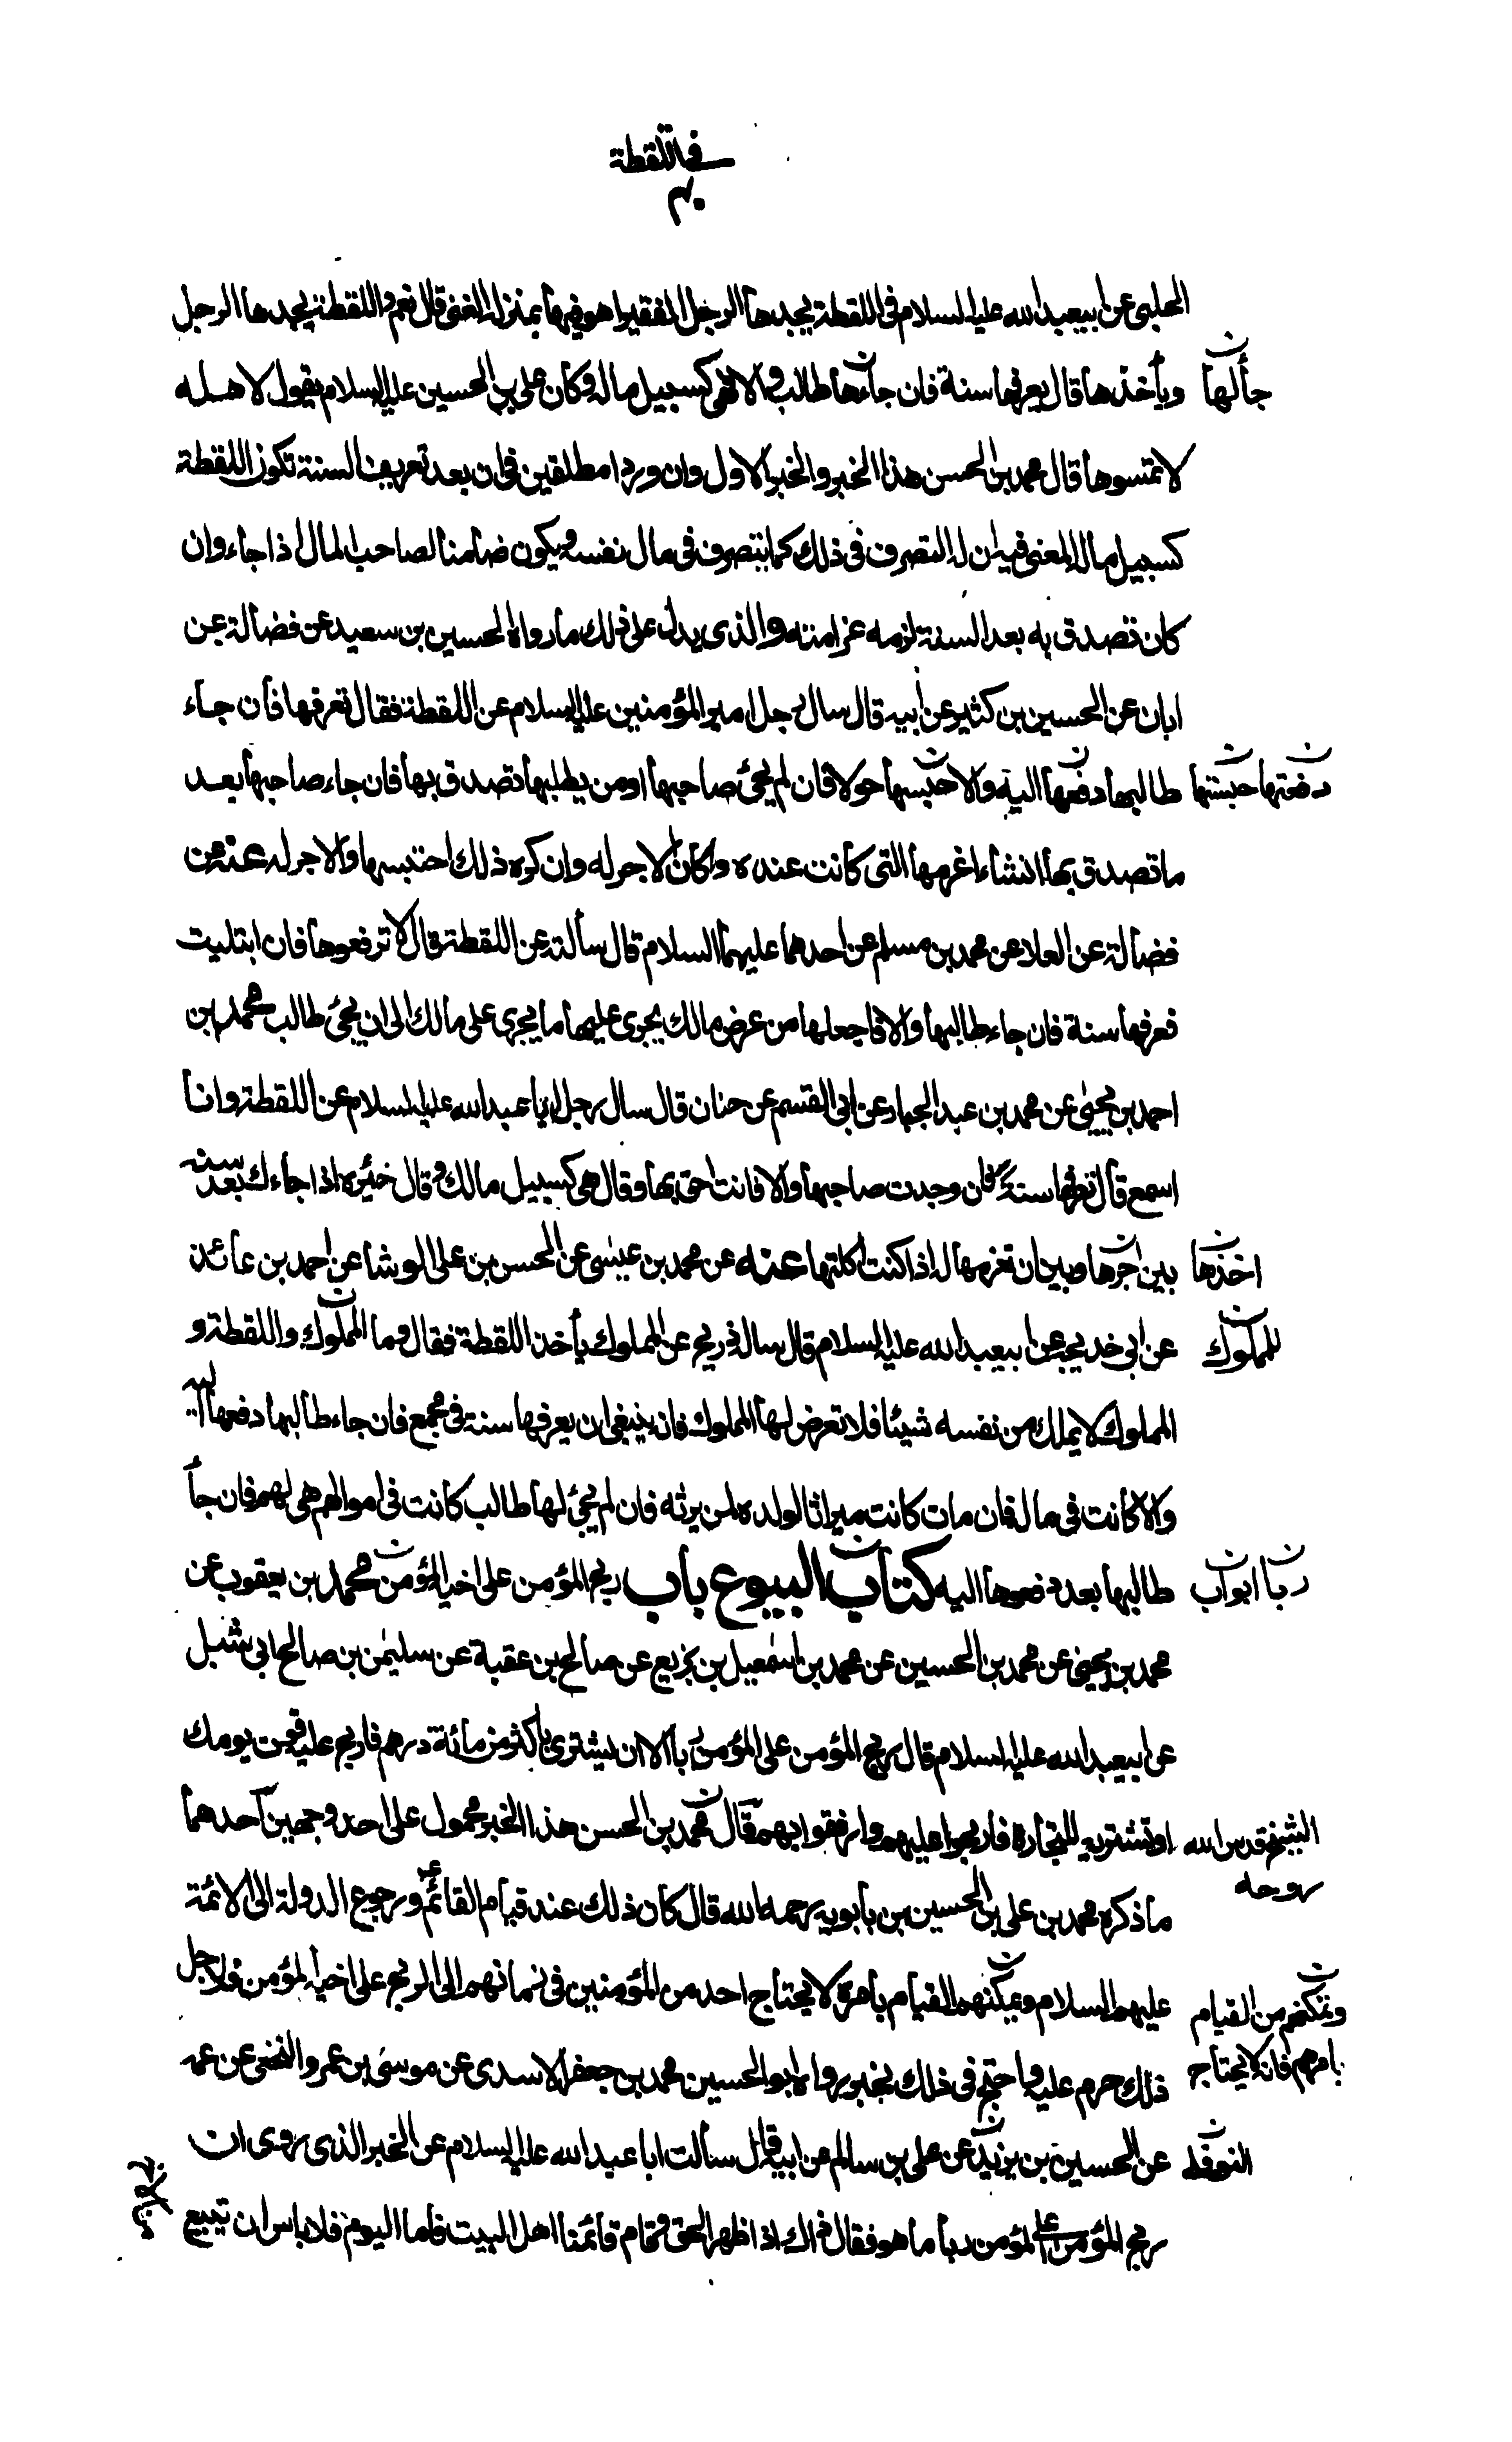 في اللقطة
الحلبي عن ابيعبد الله عليه السلام في اللقطة يجدها الرجل الفقير اهو فيها بمنزلة الغنى قال نعم واللقطة يجدها الرجل
جألها
ويأخذها قال يعرفها سنة فان جاءها طالب والا فهي كسبيل ماله وكان على بن الحسين عليه السلام يقول لاهله
لا تمسوها قال محمد بن الحسن هذا الخبر والخبر الاول وان وردا مطلقين في ان بعد تعريف السنة تكون اللقطة
كسبيل ماله المعنى فيه ان له التصرف في ذلك كما يتصرف في مال نفسه ويكون ضامنا لصاحب المال اذا جاء وان
كان تصدق به بعد السنة لزمه غرامته والذى يدل على ذلك ما رواه الحسين بن سعيد عن فضالة عن
ابان عن الحسين بن كثير عن ابيه قال سال رجل امير المؤمنين عليه السلام عن اللقطة فقال تعرفها فان جاء
دفعتها حبستها
طالبها دفعها اليه والا حبسها حولا فان لم يجئ صاحبها او من يطلبها تصدق بها فان جاء صاحبها بعد
ما تصدق بها ان شاء اغرمها التى كانت عنده وكان الاجر له وان كره ذلك احتبسها والاجر له عنه عن
فضالة عن العلا عن محمد بن مسلم عن احدهما عليهما السلام قال سألته عن اللقطة قال لا ترفعوها فان ابتليت
فعرفها سنة فان جاء طالبها والا فاجعلها من عرض مالك يجرى عليها ما يجرى على مالك الى ان يجئ طالب محمد بن
احمد بن يحيى عن محمد بن عبد الجبار عن ابى القسم عن حنان قال سال رجل ابا عبد الله عليه السلام عن اللقطة وانا
اسمع قال تعرفها سنة فان وجدت صاحبها والا فانت احق بها وقال هى كسبيل مالك وقال خيره اذا جاءك بعد سنة
اخذها
بين اجرها وبين ان تغرمها له اذا كنت اكلتها عنه عن محمد بن عيسى عن الحسن بن على الوشا عن احمد بن عائذ
للمملوك
عن ابى خديجة عن ابيعبد الله عليه السلام قال ساله ذريح عن المملوك يأخذ اللقطة فقال وما المملوك واللقطة و
المملوك لا يملك من نفسه شيئا فلا تعرض لها المملوك فانه ينبغى ان يعرفها سنة في مجمع فان جاء طالبها دفعها اليه
والا كانت في ماله فان مات كانت ميراثا لولده ولمن يرثه فان لم يجئ لها طالب كانت في اموالهم هى لهم فان جأ
ربا ابواب
طالبها بعد دفعوها اليه كتاب البيوع باب ربح المؤمن على اخيه المؤمن محمد بن يعقوب عن
محمد بن يحيى عن محمد بن الحسين عن محمد بن اسمعيل بن بزيع عن صالح بن عقبة عن سليمن بن صالح ابى شبل
عن ابيعبد الله عليه السلام قال ربح المؤمن على المؤمن ربا الا ان يشترى باكثر من مائة درهم فاربح عليه قوت يومك
الشيخ قدس الله
روحه
او تشتريه للتجارة فاربحوا عليهم وارفقوا بهم قال محمد بن الحسن هذا الخبر محمول على احد وجهين احدهما
ما ذكره محمد بن على بن الحسين بن بابويه رحمه الله قال كان ذلك عند قيام القائم ع ورجوع الدولة الى الائمة
وتمكنهم من القيام
عليهم السلام وتمكنهم القيام بامره لا يحتاج احد من المؤمنين في زمانهم الى الربح على اخيه المؤمن فلاجل
بامرهم فانه لا يحتاج
ذلك حرم عليه واحتج في ذلك بخبر رواه ابو الحسين محمد بن جعفر الاسدى عن موسى بن عمرو النخعى عن عمه
النوفلى
عن الحسين بن يزيد عن على بن سالم عن ابيه قال سألت ابا عبد الله عليه السلام عن الخبر الذى روى ان
ربح المؤمن على المؤمن ربأ ما هو فقال ذاك اذا ظهر الحق وقام قائمنا اهل البيت فاما اليوم فلا باس ان تبيع